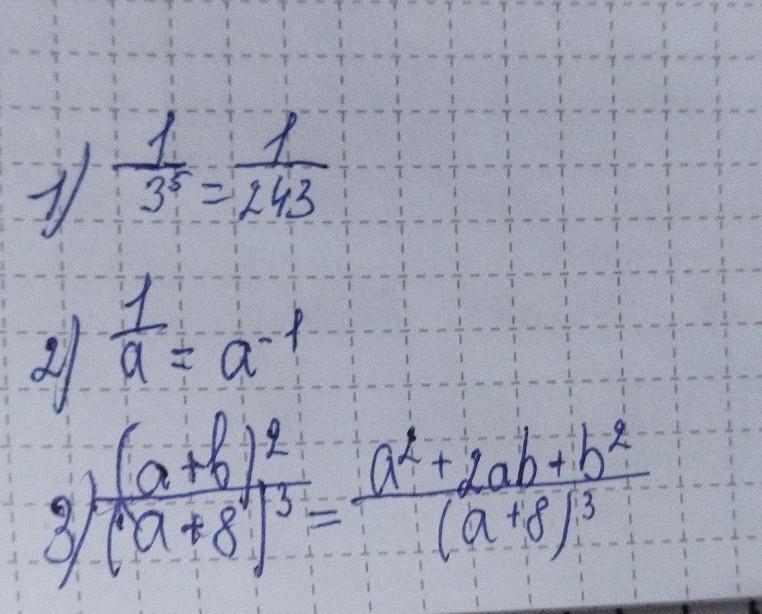 1) 1/3⁵ = 1/243
2) 1/a = a⁻¹
3) (a+b)²/(a+8)³ = a²+2ab+b²/(a+8)³